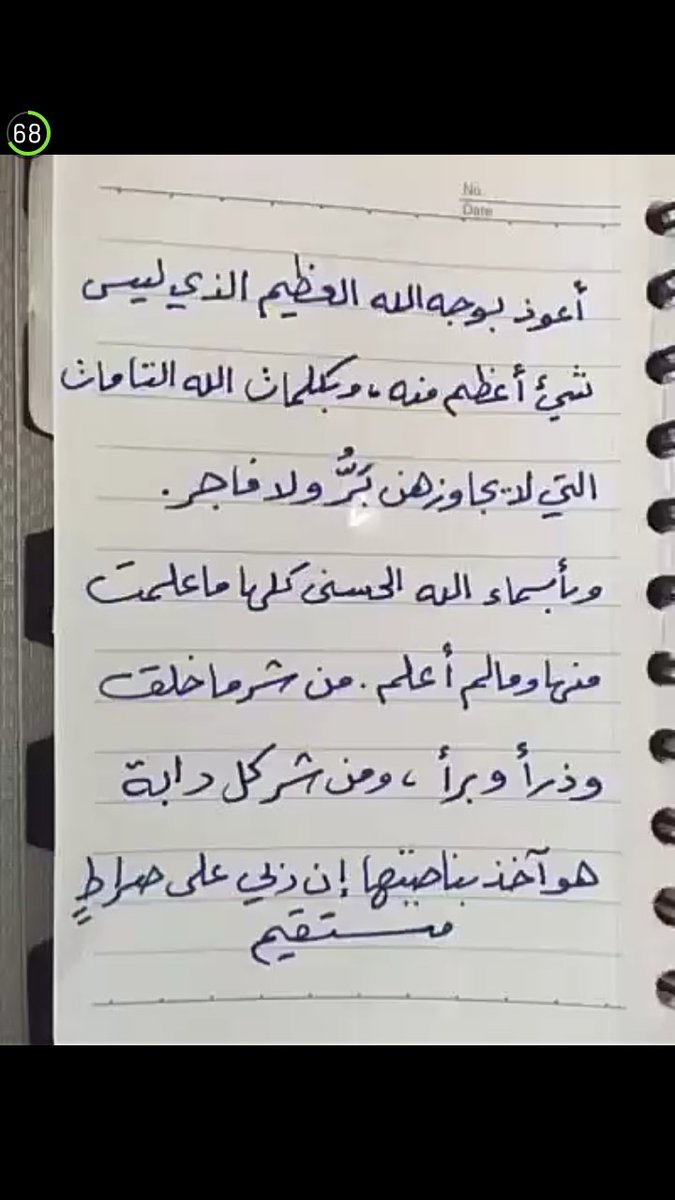 68
No.
Date
أعوذ بوجه الله العظيم الذي ليس
شيئ أعظم منه، وبكلمات الله التامات
التي لا يجاوزهن بَرُّ ولا فاجر.
وبأسماء الله الحسنى كلها ما علمت
منها وما لم أعلم. من شر ما خلق
وذرأ وبرأ، ومن شر كل دابة
هو آخذ بناصيتها إن ربي على صراطٍ
مستقيم